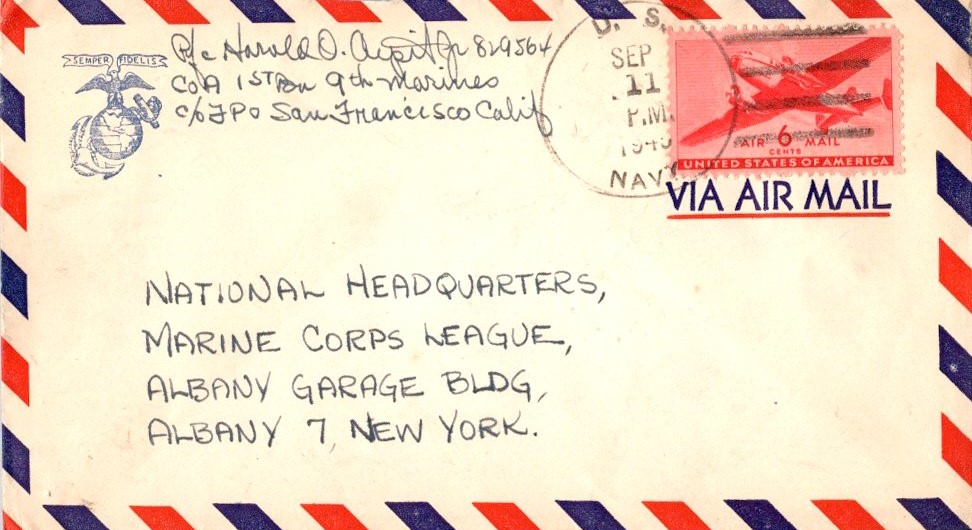 SEMPER FIDELIS
Pfc Harold O. Jr 829564
Co A 1ST Bn 9th Marines
c/o FPO San Francisco Calif
U. S.
SEP
11
P.M.
NAVY
AIR 6 MAIL
CENTS
UNITED STATES OF AMERICA
VIA AIR MAIL
NATIONAL HEADQUARTERS,
MARINE CORPS LEAGUE,
ALBANY GARAGE BLDG,
ALBANY 7, NEW YORK.